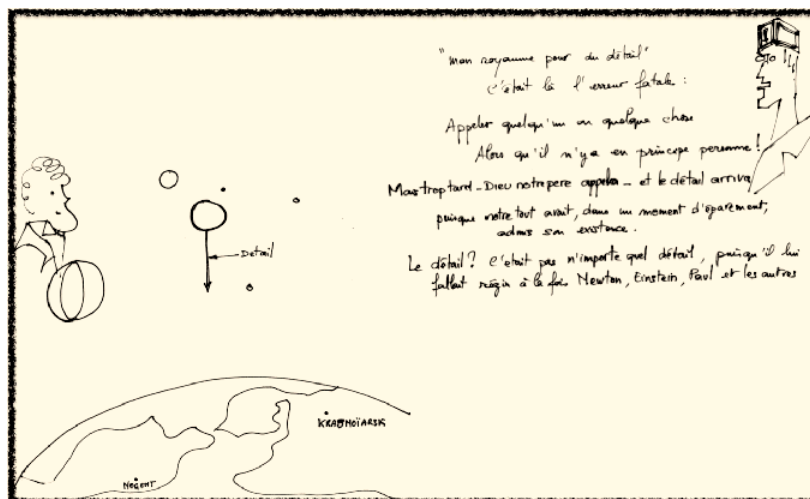 "mon royaume pour du détail"
c'était là l'erreur fatale :
Appeler quelqu'un ou quelque chose
Alors qu'il n'y a en principe personne !
Mais trop tard - Dieu notre père appela - et le détail arriva
puisque notre tout avait, dans un moment d'égarement,
admis son existence.
Le détail ? C'était pas n'importe quel détail, puisqu'il lui
fallait régir à la fois Newton, Einstein, Paul et les autres
Détail
KRASNOÏARSK
NOGENT